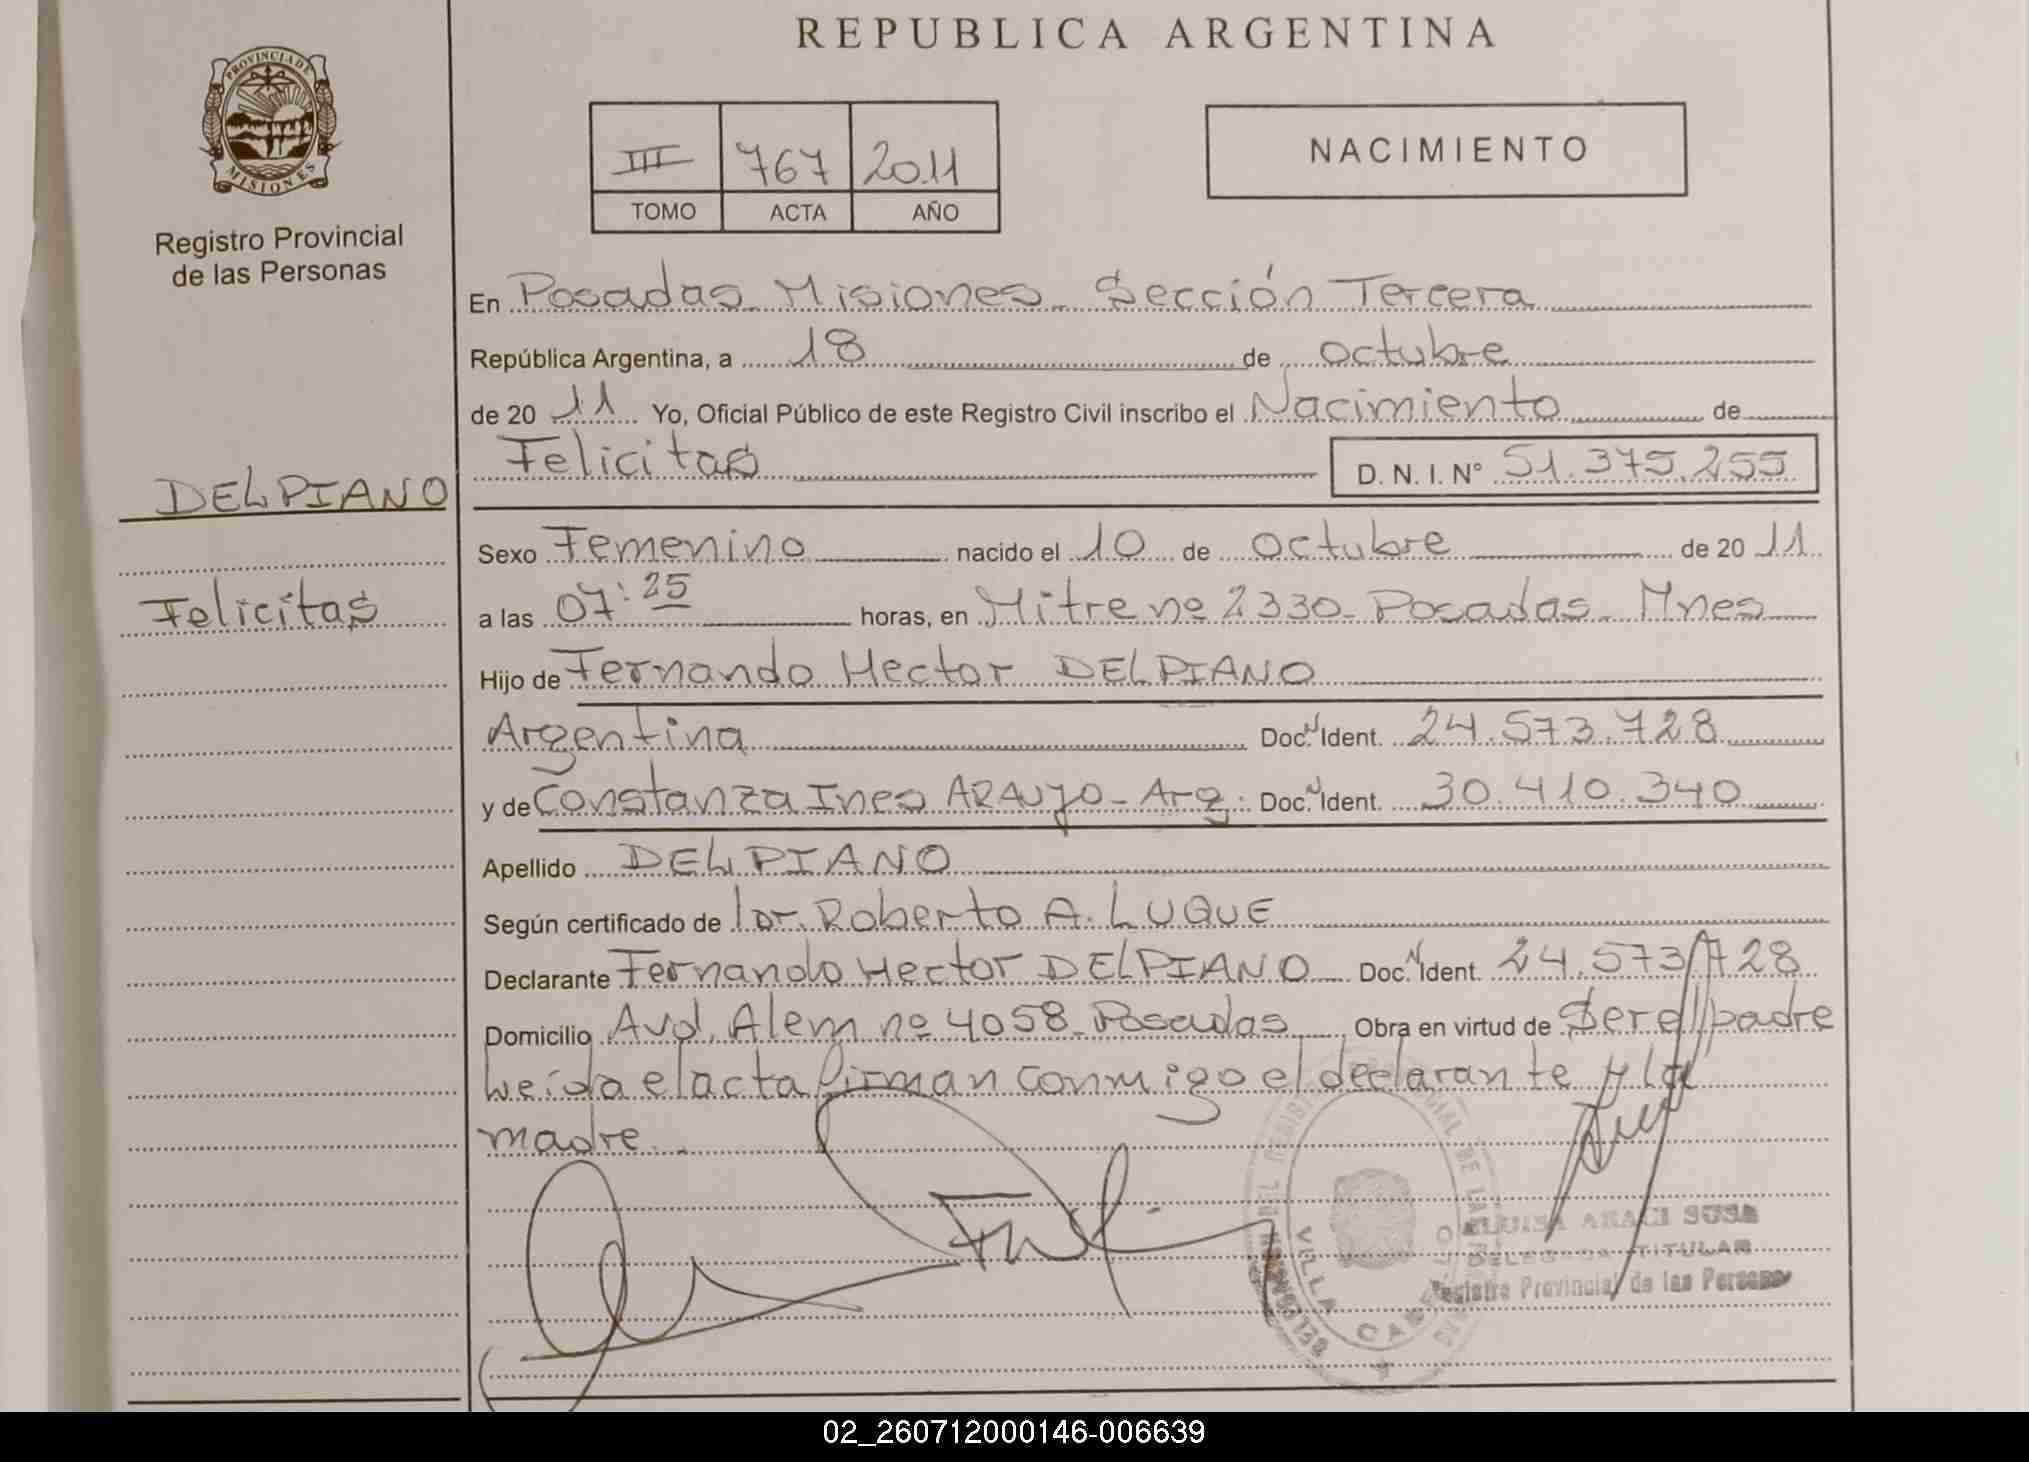 REPUBLICA ARGENTINA
PROVINCIA DE
MISIONES
Registro Provincial
de las Personas
III 767 2011
TOMO ACTA AÑO
NACIMIENTO
En Posadas Misiones Sección Tercera
República Argentina, a 18 de octubre
de 20 11 Yo, Oficial Público de este Registro Civil inscribo el Nacimiento de
Felicitas D. N. I. N° 51.375.255
DELPIANO
Felicitas
Sexo Femenino nacido el 10 de octubre de 20 11
a las 07:25 horas, en Mitre nº 2330 Posadas Mnes
Hijo de Fernando Hector DELPIANO
Argentina Doc. N Ident. 24.573.728
y de Constanza Ines ARAUJO - Arg. Doc. N Ident. 30.410.340
Apellido DELPIANO
Según certificado de Roberto A. LUQUE
Declarante Fernando Hector DELPIANO Doc. N Ident. 24.573.728
Domicilio Avd. Alem nº 4058 Posadas Obra en virtud de Ser el padre
Leída el acta firman conmigo el declarante y la
madre.
DELEGADA TITULAR
Registro Provincial de las Personas
VILLA
MISIONES
02_260712000146-006639